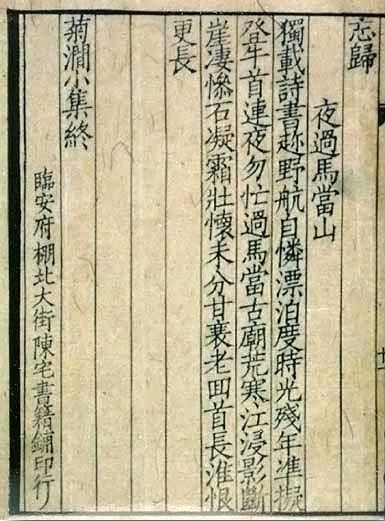 忘歸
夜過馬當山
獨載詩書趂野航自憐漂泊度時光殘年准擬
登牛首連夜匆忙過馬當古廟荒寒江浸影斷
崖凄慘石凝霜壯懷未分甘衰老囬首長淮恨
更長
菊澗小集終
臨安府棚北大街陳宅書籍鋪印行